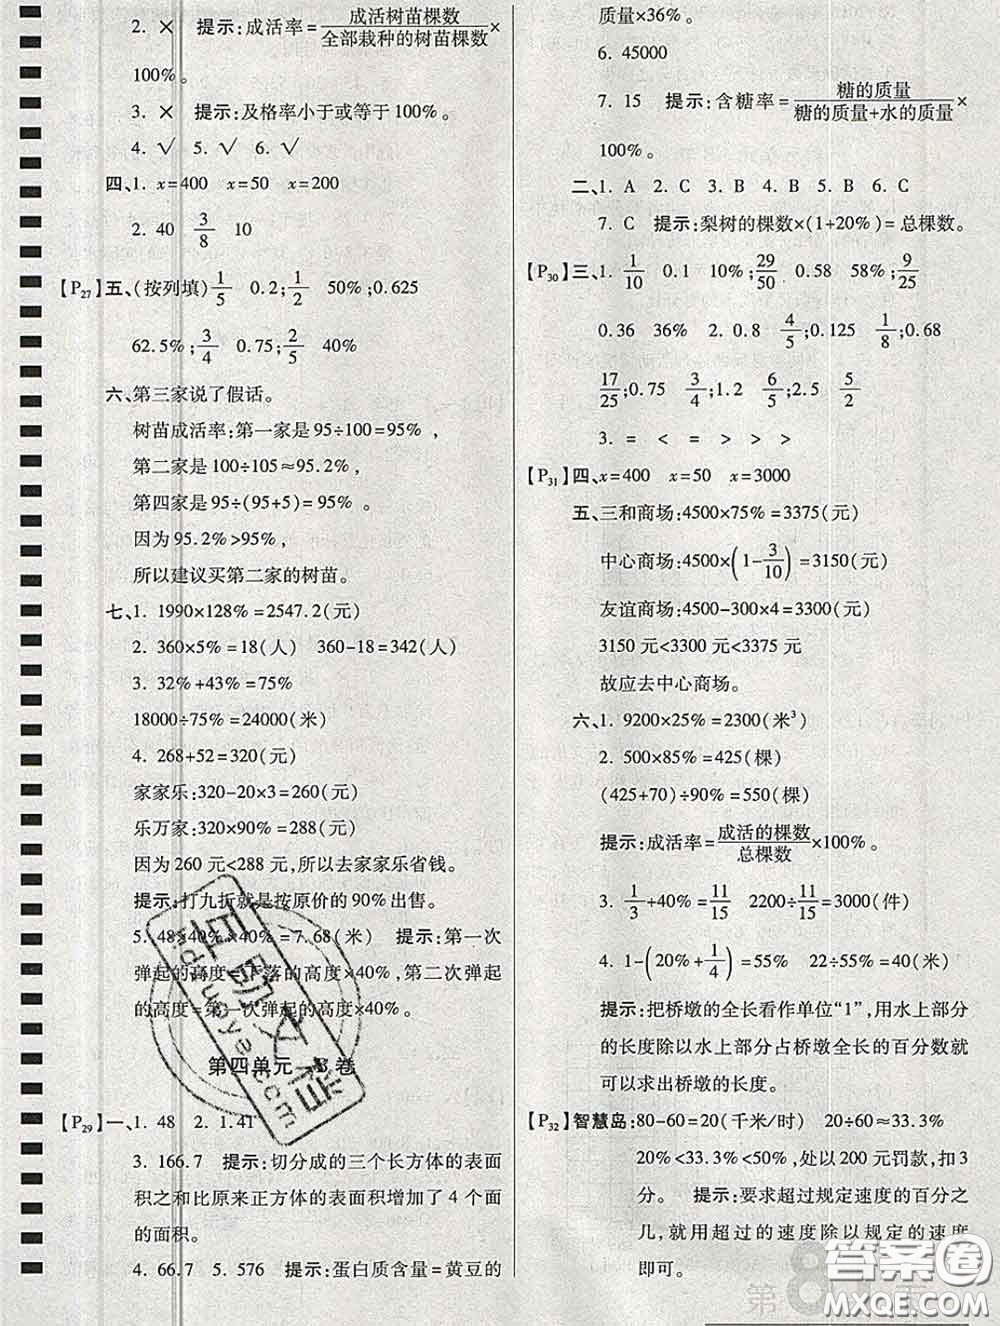 2. × 提示:成活率=成活树苗棵数/全部栽种的树苗棵数×
100%。
3. × 提示:及格率小于或等于100%。
4. √ 5. √ 6. √
四、1. x=400 x=50 x=200
2. 40 3/8 10
【P27】五、(按列填)1/5 0.2;1/2 50%;0.625
62.5%;3/4 0.75;2/5 40%
六、第三家说了假话。
树苗成活率:第一家是95÷100=95%,
第二家是100÷105≈95.2%,
第四家是95÷(95+5)=95%
因为95.2%>95%,
所以建议买第二家的树苗。
七、1. 1990×128%=2547.2(元)
2. 360×5%=18(人) 360-18=342(人)
3. 32%+43%=75%
18000÷75%=24000(米)
4. 268+52=320(元)
家家乐:320-20×3=260(元)
乐万家:320×90%=288(元)
因为260元<288元,所以去家家乐省钱。
提示:打九折就是按原价的90%出售。
5. 48×40%×40%=7.68(米) 提示:第一次
弹起的高度=下落的高度×40%,第二次弹起
的高度=第一次弹起的高度×40%。
第四单元 B卷
【P29】一、1. 48 2. 1.41
3. 166.7 提示:切分成的三个长方体的表面
积之和比原来正方体的表面积增加了4个面
的面积。
4. 66.7 5. 576 提示:蛋白质含量=黄豆的
质量×36%。
6. 45000
7. 15 提示:含糖率=糖的质量/糖的质量+水的质量×
100%。
二、1. A 2. C 3. B 4. B 5. B 6. C
7. C 提示:梨树的棵数×(1+20%)=总棵数。
【P30】三、1. 1/10 0.1 10%;29/50 0.58 58%;9/25
0.36 36% 2. 0.8 4/5;0.125 1/8;0.68
17/25;0.75 3/4;1.2 6/5;2.5 5/2
3. = < = > > >
【P31】四、x=400 x=50 x=3000
五、三和商场:4500×75%=3375(元)
中心商场:4500×(1-3/10)=3150(元)
友谊商场:4500-300×4=3300(元)
3150元<3300元<3375元
故应去中心商场。
六、1. 9200×25%=2300(米³)
2. 500×85%=425(棵)
(425+70)÷90%=550(棵)
提示:成活率=成活的棵数/总棵数×100%。
3. 1/3+40%=11/15 2200÷11/15=3000(件)
4. 1-(20%+1/4)=55% 22÷55%=40(米)
提示:把桥墩的全长看作单位“1”,用水上部分
的长度除以水上部分占桥墩全长的百分数就
可以求出桥墩的长度。
【P32】智慧岛:80-60=20(千米/时) 20÷60≈33.3%
20%<33.3%<50%,处以200元罚款,扣3
分。 提示:要求超过规定速度的百分之
几,就用超过的速度除以规定的速度
即可。
答案圈
MXQE.COM